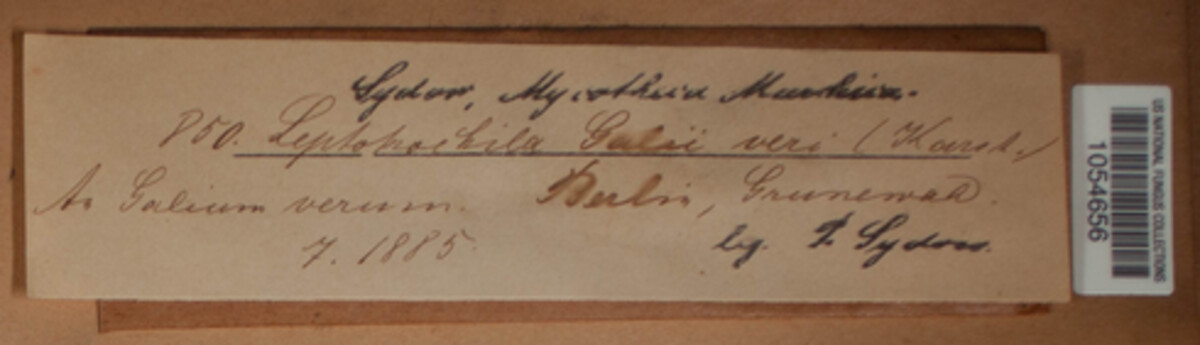 Sydow, Mycotheca Marchica.
850. Leptotrochila Galii veri (Karst.)
An Galium verum. Berlin, Grunewald.
7. 1885.
leg. P. Sydow.
US NATIONAL FUNGUS COLLECTIONS
1054656